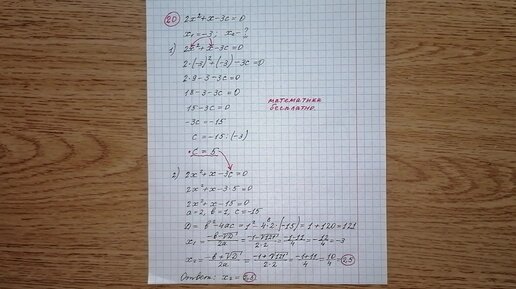 20 2x²+x-3c=0
x₁=-3; x₂-?
1) 2x²+x-3c=0
2·(-3)²+(-3)-3c=0
2·9-3-3c=0
18-3-3c=0
15-3c=0
-3c=-15
c=-15:(-3)
c=5
математика
бесплатно.
2) 2x²+x-3c=0
2x²+x-3·5=0
2x²+x-15=0
a=2, b=1, c=-15
D=b²-4ac=1²-4·2·(-15)=1+120=121
x₁=(-b-√D)/2a=(-1-√121)/2·2=(-1-11)/4=-12/4=-3
x₂=(-b+√D)/2a=(-1+√121)/2·2=(-1+11)/4=10/4=2,5
Ответ: x₂=2,5